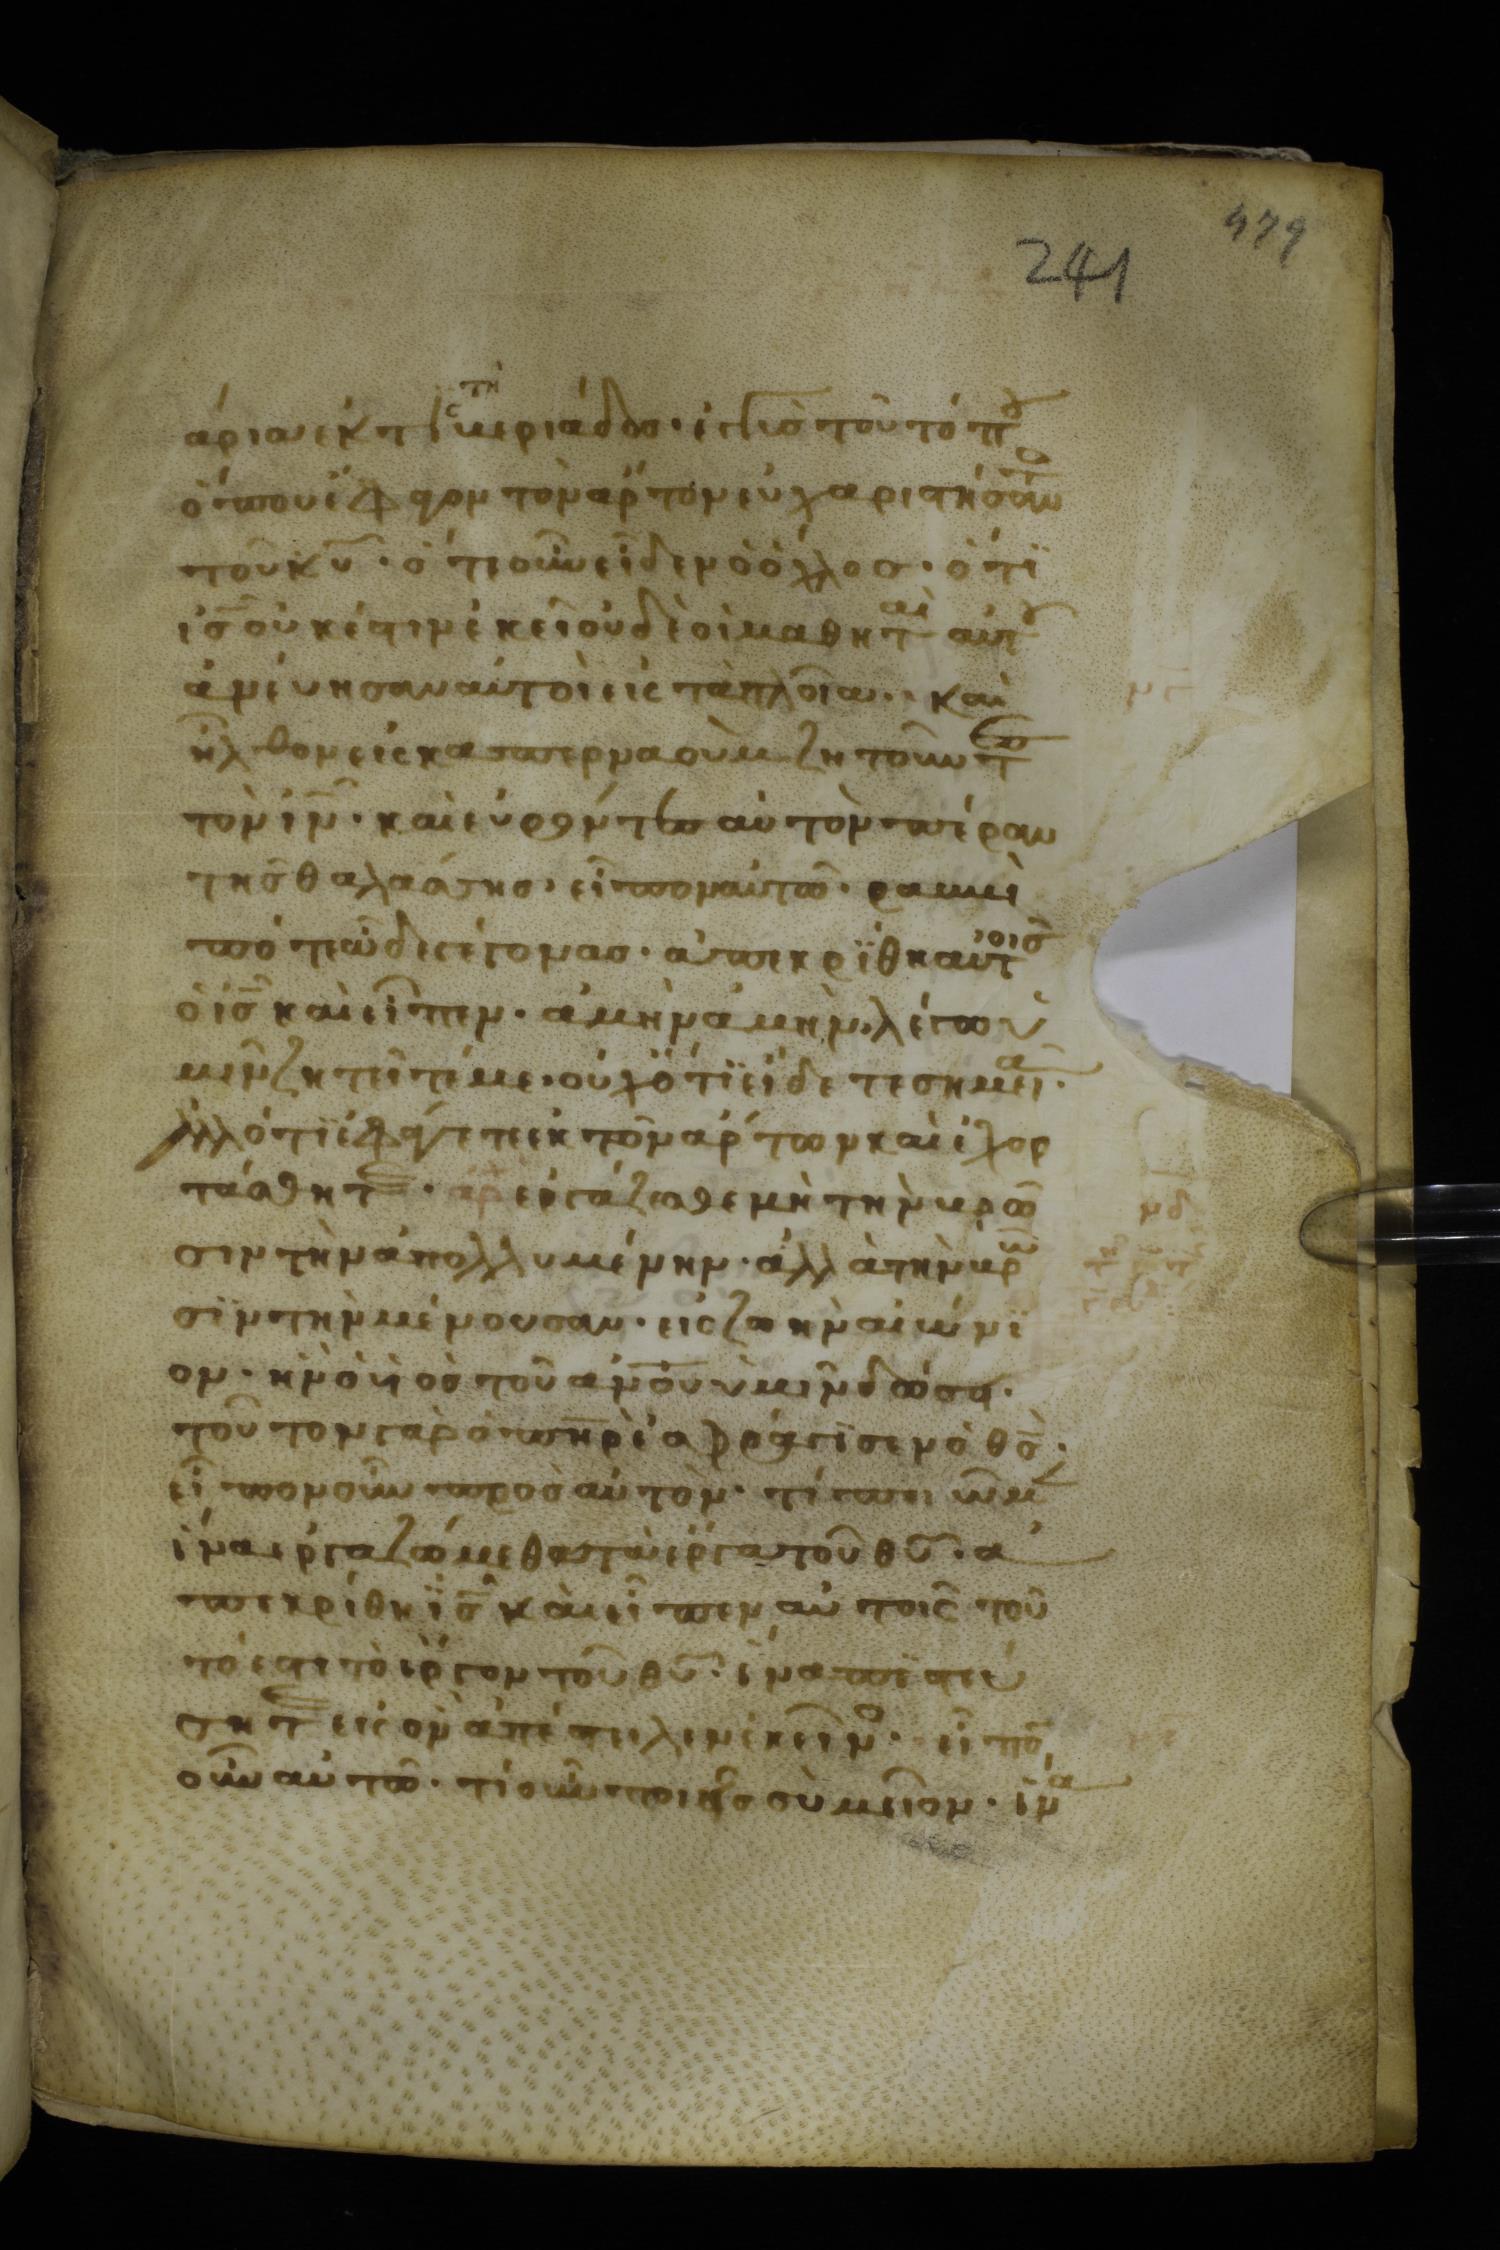 479
241
ἄρια ἐκ τῆς τηβεριάδος· ἐγγὺς τοῦ τόπου
ὅπου ἔφαγον τὸν ἄρτον εὐχαριστήσαντο
τοῦ κυ̅· ὅτε οὖν εἶδεν ὁ ὄχλος· ὅτι
ἰς̅ οὐκ ἔστιν ἐκεῖ οὐδὲ οἱ μαθηταὶ αὐτοῦ
ἀνέβησαν αὐτοὶ εἰς τὰ πλοῖα· καὶ
ἦλθον εἰς καπερναοὺμ ζητοῦντες
τὸν ἰν̅· καὶ εὑρόντες αὐτὸν πέραν
τῆς θαλάσσης· εἶπον αὐτῶ· ραββὶ
πότε ὧδε γέγονας· ἀπεκρίθη αὐτοῖς
ὁ ἰς̅ καὶ εἶπεν· ἀμὴν ἀμὴν λέγω ὑ
μῖν ζητεῖτέ με· οὐχ ὅτι εἴδετε σημεῖα·
ἀλλ ὅτι ἐφάγετε ἐκ τῶν ἄρτων καὶ ἐχορ
τάσθητε· ἐργάζεσθε μὴ τὴν βρῶ
σιν τὴν ἀπολλυμένην· ἀλλὰ τὴν βρῶ
σιν τὴν μένουσαν· εἰς ζωὴν αἰώνι
ον· ἣν ὁ ὑιὸς τοῦ ανο̅υ ὑμῖν δώσει·
τοῦτον γὰρ ὁ πηρ̅ ἐσφράγισεν ὁ θς̅·
εἶπον οὖν πρὸς αὐτὸν· τί ποιῶμεν
ἵνα ἐργαζώμεθα τὰ ἔργα τοῦ θυ̅· ἀ
πεκρίθη ἰς̅ καὶ εἶπεν αὐτοῖς τοῦ
τό ἐστι τὸ ἔργον τοῦ θυ̅· ἵνα πιστεύ
σητε εἰς ὃν ἀπέστειλεν ἐκεῖνος· εἶπον
οὖν αὐτῶ· τί οὖν ποιεῖς σὺ σημεῖον· ἵνα